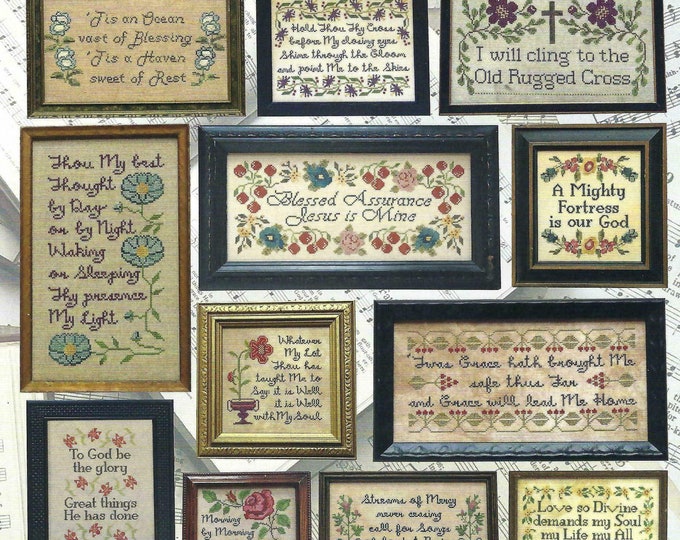 'Tis an Ocean
vast of Blessing
'Tis a Haven
sweet of Rest
Hold Thou Thy Cross
before My closing eyes
Shine through the Gloom
and point Me to the Skies
I will cling to the
Old Rugged Cross
Thou My best
Thought
by Day
or by Night
Waking
or Sleeping
Thy presence
My Light
Blessed Assurance
Jesus is Mine
A Mighty
Fortress
is our God
Whatever
My Lot
Thou has
taught Me to
Say it is Well
it is Well
with My Soul
'Twas Grace hath brought Me
safe thus Far
and Grace will lead Me Home
To God be
the glory
Great things
He has done
Morning
by Morning
Streams of Mercy
never ceasing
call for Songs
Love so Divine
demands my Soul
my Life my All